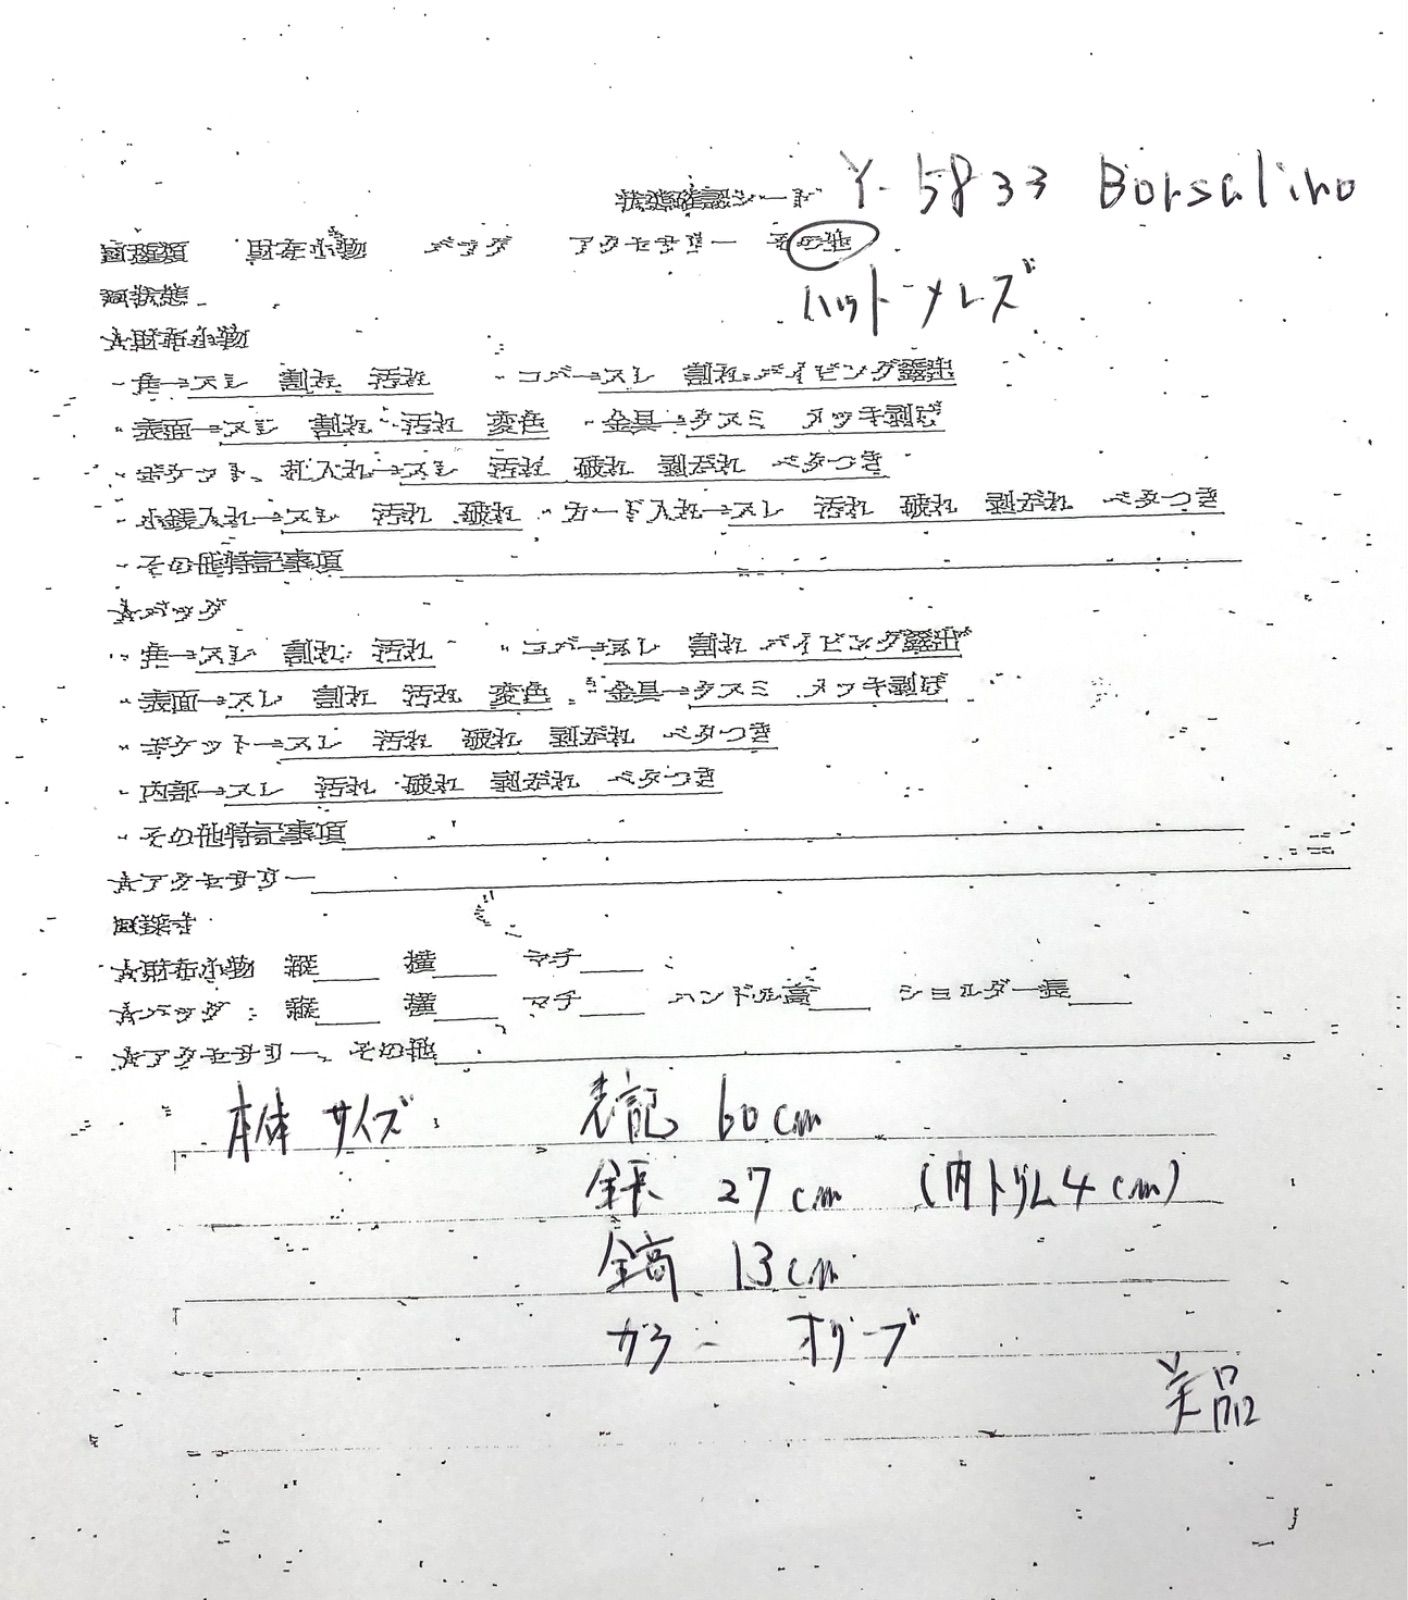 状態確認シート Y-5833 Borsalino
財布小物 バッグ アクセサリー その他
ハット メンズ
状態
☆財布小物
・角→スレ 割れ 汚れ ・コバ→スレ 割れ パイピング露出
・表面→スレ 割れ 汚れ 変色 ・金具→クスミ メッキ剥げ
・ポケット、札入れ→スレ 汚れ 破れ 剥がれ ベタつき
・小銭入れ→スレ 汚れ 破れ ・カード入れ→スレ 汚れ 破れ 剥がれ ベタつき
・その他特記事項
☆バッグ
・角→スレ 割れ 汚れ ・コバ→スレ 割れ パイピング露出
・表面→スレ 割れ 汚れ 変色 ・金具→クスミ メッキ剥げ
・ポケット→スレ 汚れ 破れ 剥がれ ベタつき
・内部→スレ 汚れ 破れ 剥がれ ベタつき
・その他特記事項
☆アクセサリー
採寸
☆財布小物 縦 横 マチ
☆バッグ 縦 横 マチ ハンドル高 ショルダー長
☆アクセサリー、その他
本体サイズ 表記 60cm
全長 27cm (内トリム4cm)
全高 13cm
カラー オリーブ
美品